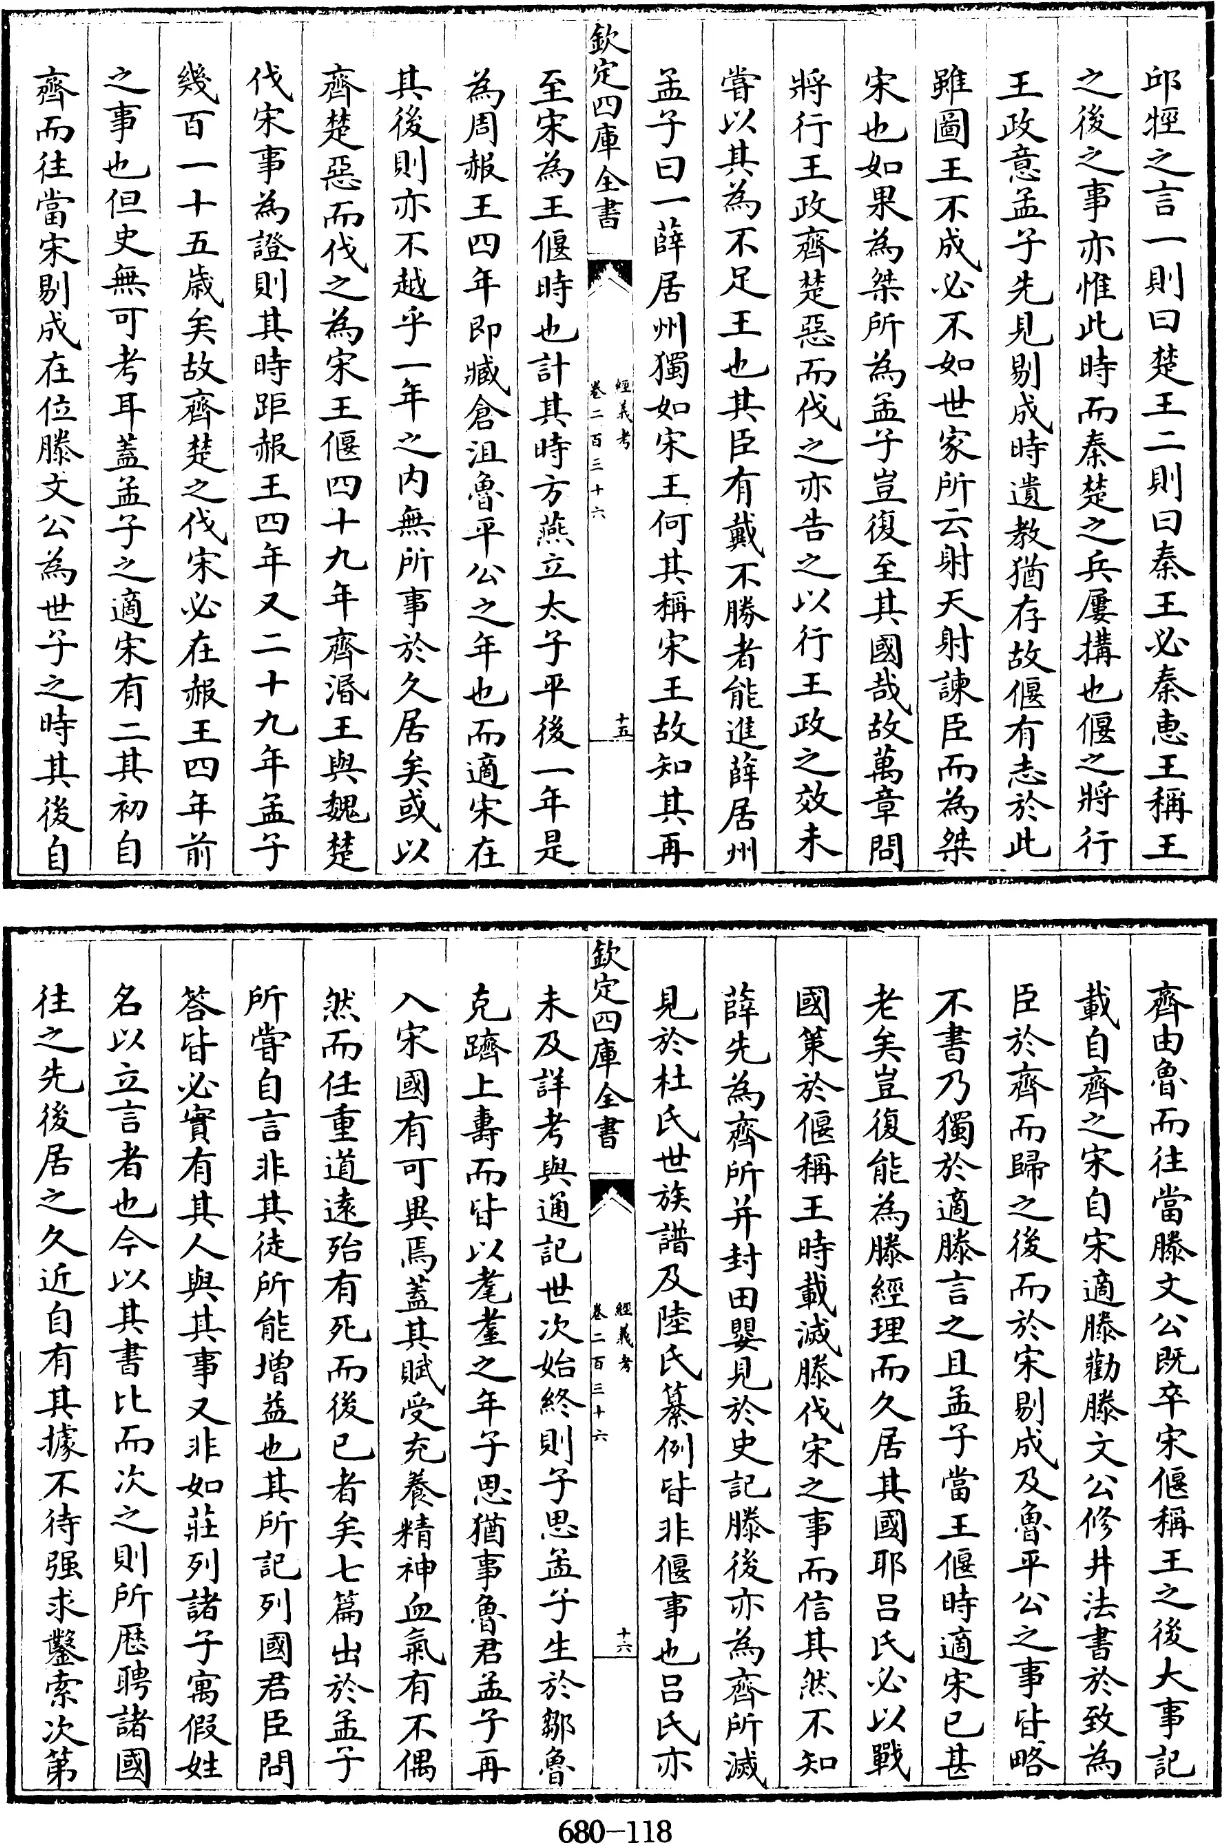 邱𨌭之言一則曰楚王二則曰秦王必秦惠王稱王
之後之事亦惟此時而秦楚之兵屢搆也偃之將行
王政意孟子先見剔成時遺教猶存故偃有志於此
雖圖王不成必不如世家所云射天射諫臣而為桀
宋也如果為桀所為孟子豈復至其國哉故萬章問
將行王政齊楚惡而伐之亦告之以行王政之效未
嘗以其為不足王也其臣有戴不勝者能進薛居州
孟子曰一薛居州獨如宋王何其稱宋王故知其再
欽定四庫全書
經義考
卷二百三十六
十五
至宋為王偃時也計其時方燕立太子平後一年是
為周赧王四年即臧倉沮魯平公之年也而適宋在
其後則亦不越乎一年之内無所事於久居矣或以
齊楚惡而伐之為宋王偃四十九年齊湣王與魏楚
伐宋事為證則其時距赧王四年又二十九年孟子
幾百一十五歳矣故齊楚之伐宋必在赧王四年前
之事也但史無可考耳蓋孟子之適宋有二其初自
齊而往當宋剔成在位滕文公為世子之時其後自
齊由魯而往當滕文公既卒宋偃稱王之後大事記
載自齊之宋自宋適滕勸滕文公修井法書於致為
臣於齊而歸之後而於宋剔成及魯平公之事皆略
不書乃獨於適滕言之且孟子當王偃時適宋已甚
老矣豈復能為滕經理而久居其國耶吕氏必以戰
國策於偃稱王時載滅滕伐宋之事而信其然不知
薛先為齊所并封田嬰見於史記滕後亦為齊所滅
見於杜氏世族譜及陸氏纂例皆非偃事也吕氏亦
欽定四庫全書
經義考
卷二百三十六
十六
未及詳考與通記世次始終則子思孟子生於鄒魯
克躋上壽而皆以耄耋之年子思猶事魯君孟子再
入宋國有可異焉蓋其賦受充養精神血氣有不偶
然而任重道遠殆有死而後已者矣七篇出於孟子
所嘗自言非其徒所能増益也其所記列國君臣問
答皆必實有其人與其事又非如莊列諸子寓假姓
名以立言者也今以其書比而次之則所歴聘諸國
往之先後居之久近自有其據不待强求鑿索次第
680-118